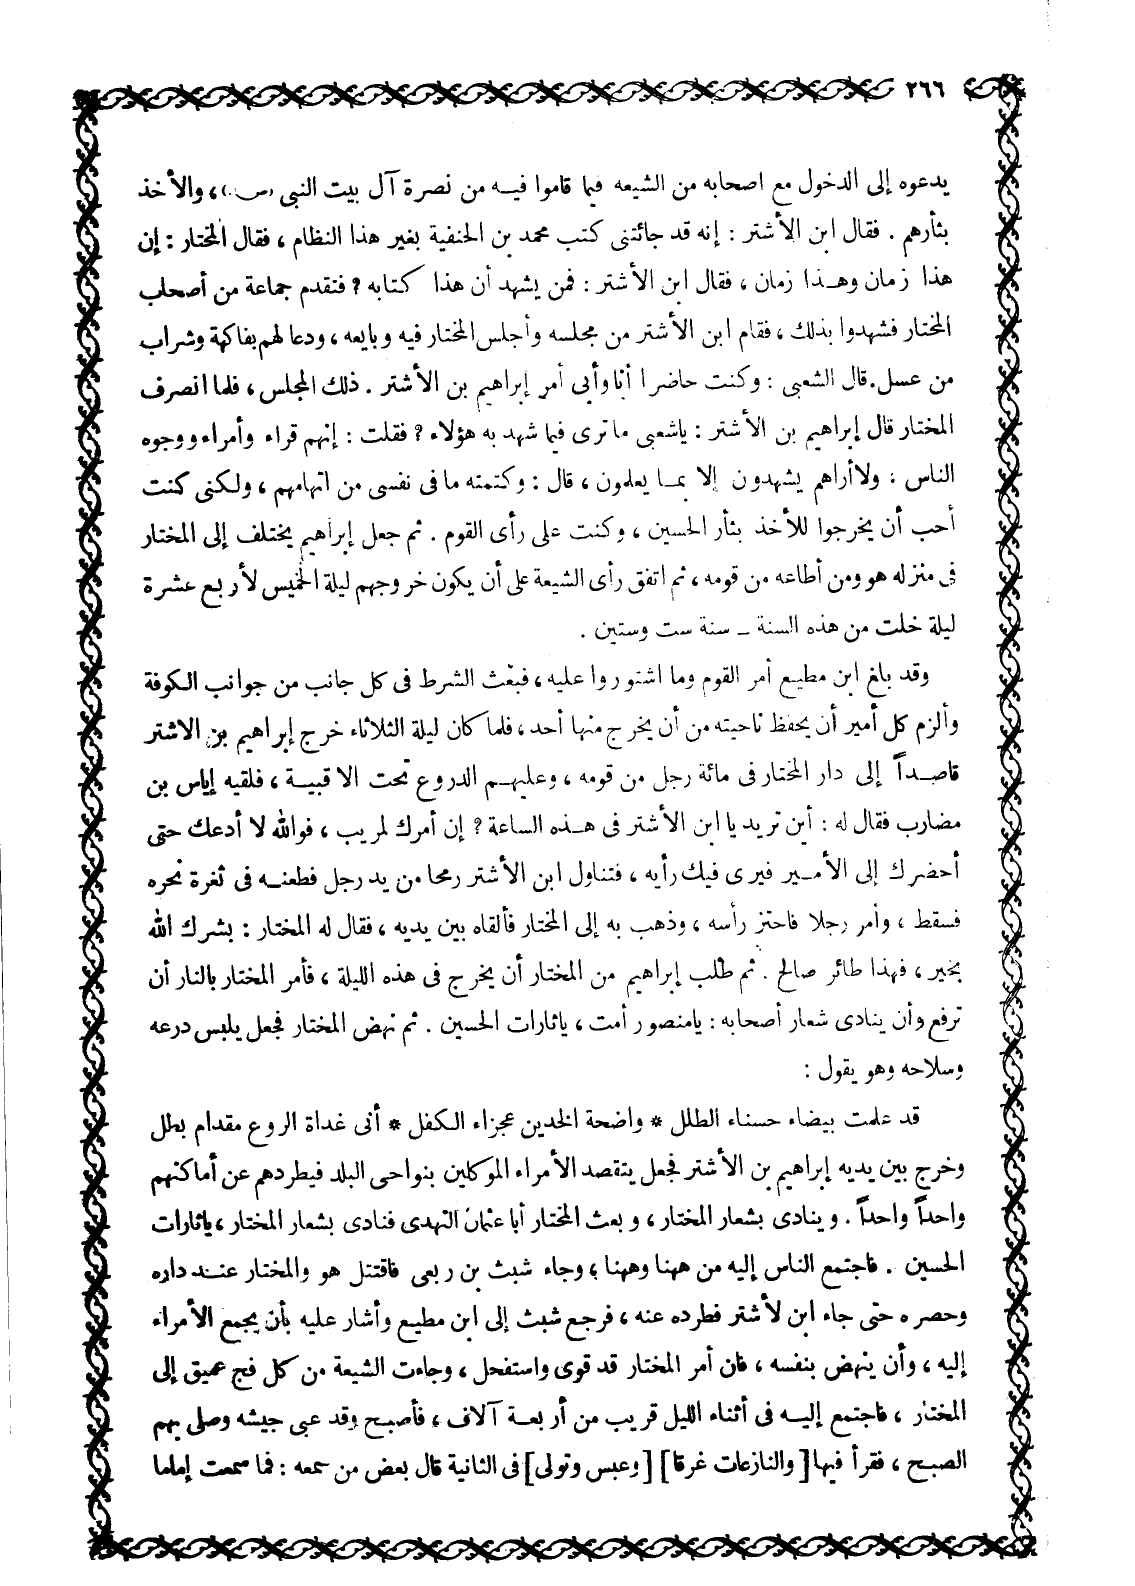 ٢٦٦
يدعوه إلى الدخول مع اصحابه من الشيعه فيما قاموا فيه من نصرة آل بيت النبى (ص)، والأخذ
بثأرهم . فقال ابن الأشتر : إنه قد جائتنى كتب محمد بن الحنفية بغير هذا النظام ، فقال المختار : إن
هذا زمان وهذا زمان ، فقال ابن الأشتر : فمن يشهد أن هذا كتابه ؟ فتقدم جماعة من أصحاب
المختار فشهدوا بذلك ، فقام ابن الأشتر من مجلسه وأجلس المختار فيه وبايعه ، ودعا لهم بفاكهة وشراب
من عسل . قال الشعبى : وكنت حاضرا أنا وأبى أمر إبراهيم بن الأشتر . ذلك المجلس ، فلما انصرف
المختار قال إبراهيم بن الأشتر : ياشعبى ما ترى فيما شهد به هؤلاء ؟ فقلت : إنهم قراء وأمراء ووجوه
الناس ، ولا أراهم يشهدون إلا بما يعلمون ، قال : وكتمته ما فى نفسى من اتهامهم ، ولكنى كنت
أحب أن يخرجوا للأخذ بثأر الحسين ، وكنت على رأى القوم . ثم جعل إبراهيم يختلف إلى المختار
فى منزله هو ومن أطاعه من قومه ، ثم اتفق رأى الشيعة على أن يكون خروجهم ليلة الخميس لأربع عشرة
ليلة خلت من هذه السنة ــ سنة ست وستين .
وقد بلغ ابن مطيع أمر القوم وما اشتوروا عليه ، فبعث الشرط فى كل جانب من جوانب الكوفة
وألزم كل أمير أن يحفظ ناحيته من أن يخرج منها أحد ، فلما كان ليلة الثلاثاء خرج إبراهيم بن الاشتر
قاصداً إلى دار المختار فى مائة رجل من قومه ، وعليهم الدروع تحت الاقبية ، فلقيه إياس بن
مضارب فقال له : أين تريد يا ابن الأشتر فى هذه الساعة ؟ إن أمرك لمريب ، فوالله لا أدعك حتى
أحضرك إلى الأمير فيرى فيك رأيه ، فتناول ابن الأشتر رمحا من يد رجل فطعنه فى ثغرة نحره
فسقط ، وأمر رجلا فاحتز رأسه ، وذهب به إلى المختار فألقاه بين يديه ، فقال له المختار : بشرك الله
بخير ، فهذا طائر صالح . ثم طلب إبراهيم من المختار أن يخرج فى هذه الليلة ، فأمر المختار بالنار أن
ترفع وأن ينادى شعار أصحابه : يامنصور أمت ، ياثارات الحسين . ثم نهض المختار فجعل يلبس درعه
وسلاحه وهو يقول :
قد علمت بيضاء حسناء الطلل * واضحة الخدين عجزاء الكفل * أنى غداة الروع مقدام بطل
وخرج بين يديه إبراهيم بن الأشتر فجعل يتقصد الأمراء الموكلين بنواحى البلد فيطردهم عن أماكنهم
واحداً واحداً . وينادى بشعار المختار ، وبعث المختار أبا عثمان النهدى فنادى بشعار المختار ، ياثارات
الحسين . فاجتمع الناس إليه من ههنا وههنا ، وجاء شبث بن ربعى فاقتتل هو والمختار عند داره
وحصره حتى جاء ابن لأشتر فطرده عنه ، فرجع شبث إلى ابن مطيع وأشار عليه بأن يجمع الأمراء
إليه ، وأن ينهض بنفسه ، فان أمر المختار قد قوى واستفحل ، وجاءت الشيعة من كل فج عميق إلى
المختار ، فاجتمع إليه فى أثناء الليل قريب من أربعة آلاف ، فأصبح وقد عبى جيشه وصلى بهم
الصبح ، فقرأ فيها [ والنازعات غرقا ] [ وعبس وتولى ] فى الثانية قال بعض من سمعه : فما سمعت إماما